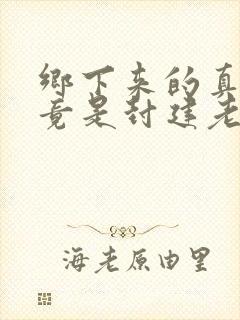 鄉下來的真
竟是封建老
海老原由里